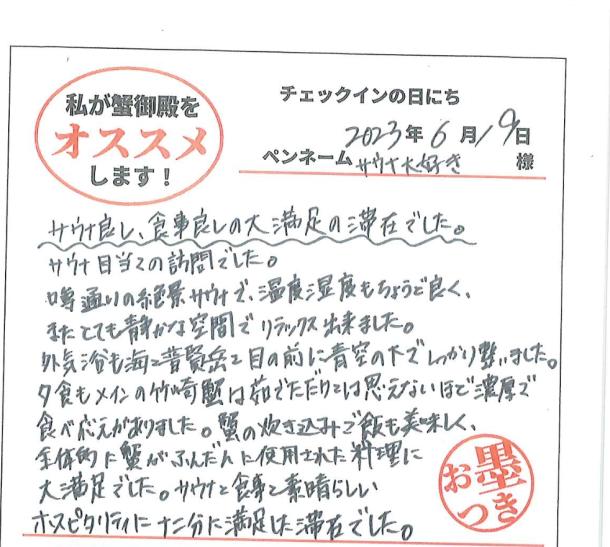 私が蟹御殿を
オススメ
します！
チェックインの日にち
2023年6月19日
ペンネーム サウナ大好き 様
サウナ良し、食事良しの大満足の滞在でした。
サウナ目当ての訪問でした。
噂通りの絶景サウナで、温度湿度もちょうど良く、
またとても静かな空間でリラックス出来ました。
外気浴も海と普賢岳を目の前に青空の下でしっかり整いました。
夕食もメインの竹崎蟹は茹でただけとは思えないほど濃厚で
食べ応えがありました。蟹の炊き込みご飯も美味しく、
全体的に蟹がふんだんに使用された料理に
大満足でした。サウナと食事と素晴らしい
ホスピタリティに十二分に満足した滞在でした。
お墨つき